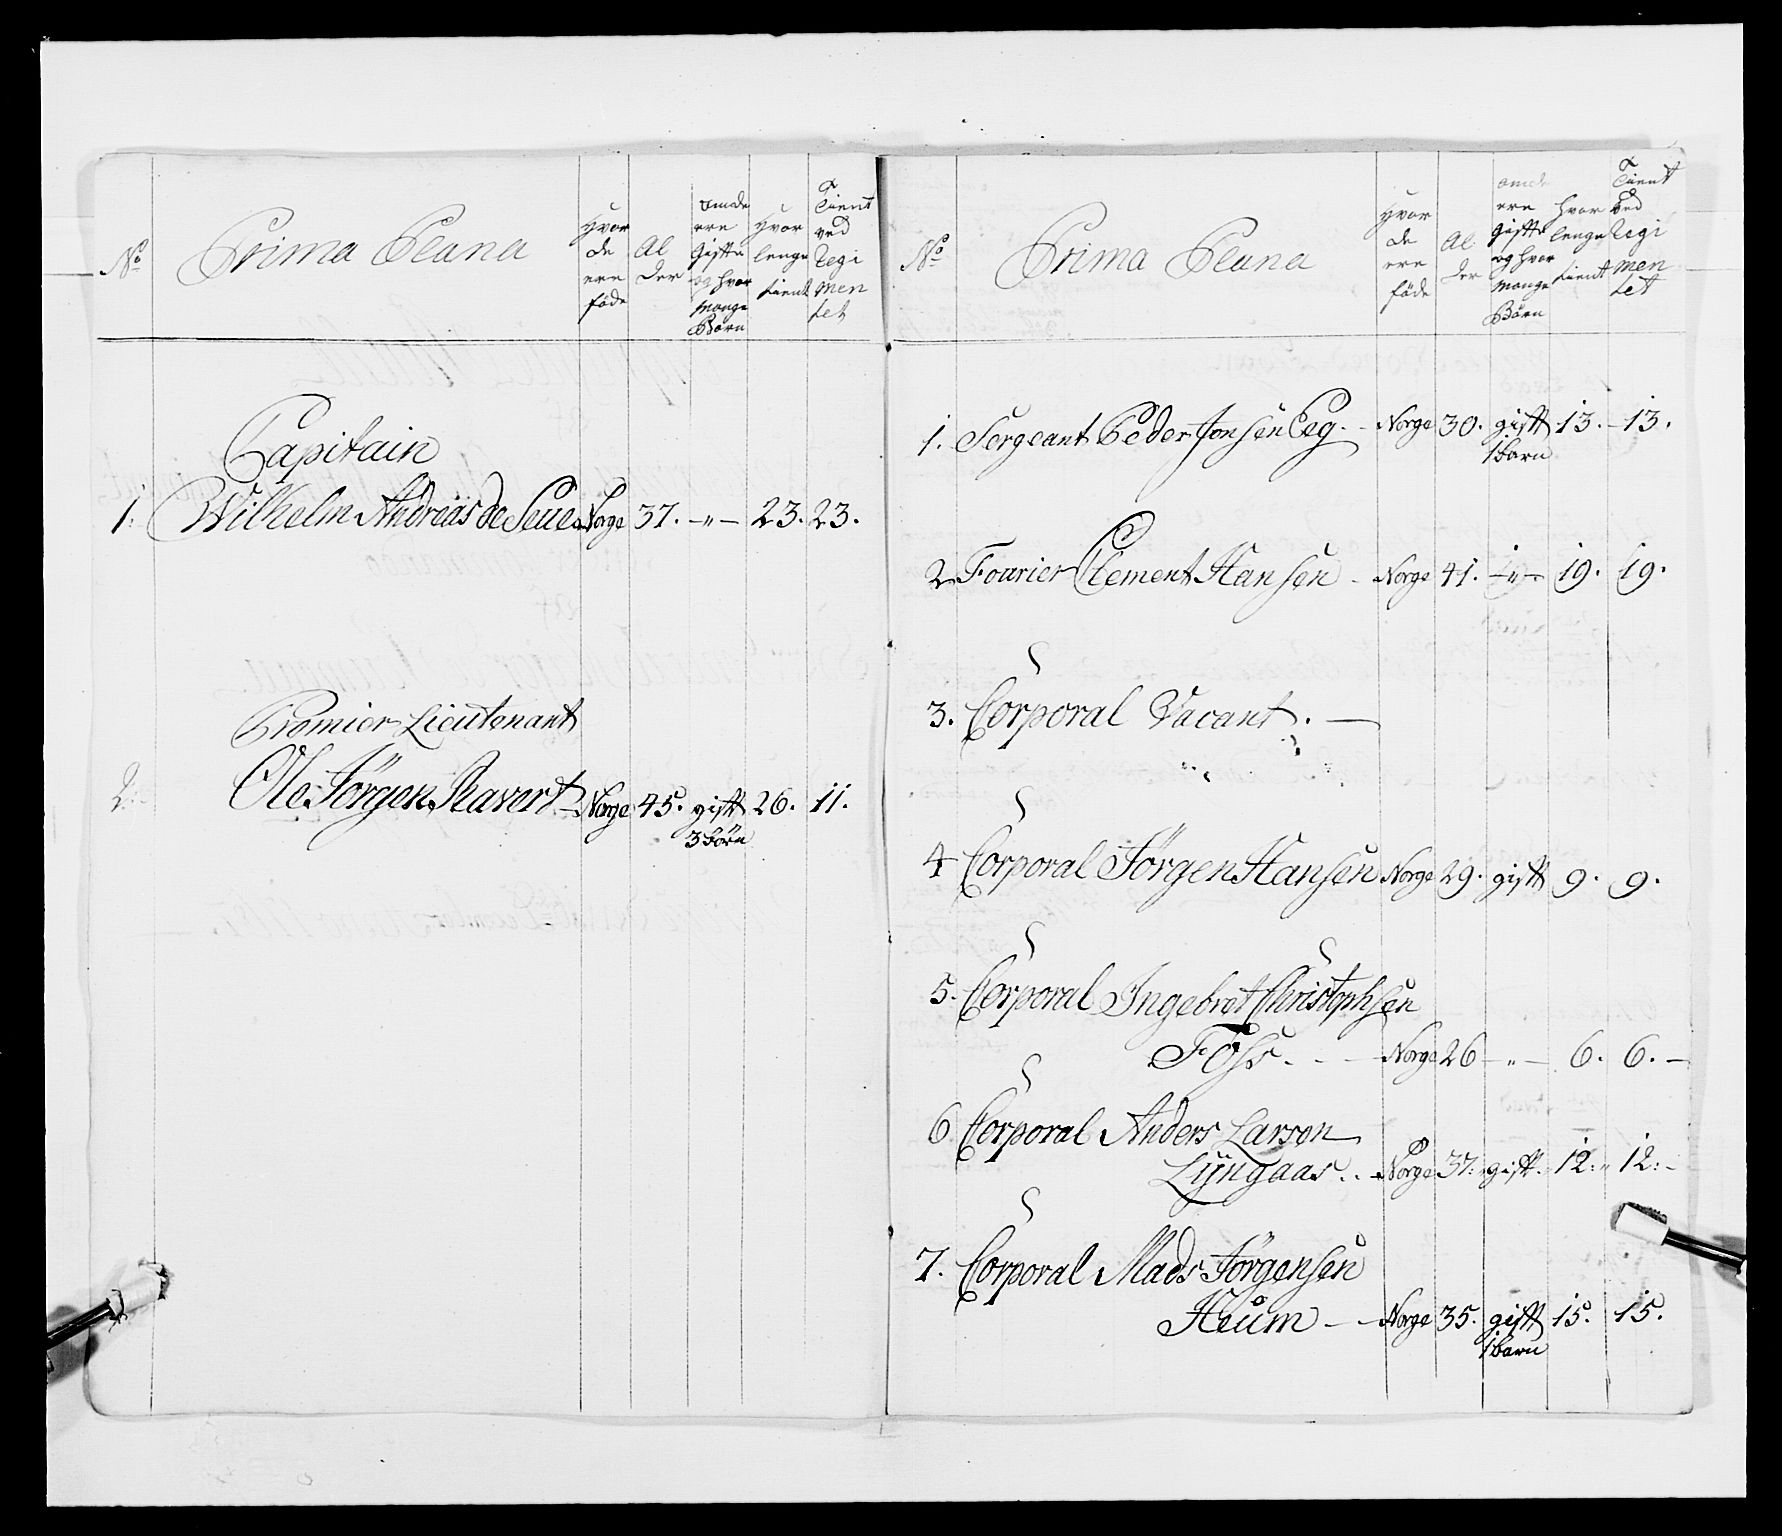 No
Prima Plana
Hvor de ere föde
Alder
om de ere Gifte og hvor mange Börn
Hvor lenge tient
Tient ved Regimentet
Capitain
1. Wilhelm Andreas de Seue Norge 37. -"- 23. 23.
Premier Lieutenant
2. Ole Jörgen Ravert Norge 45. gift 26. 11.
3 börn
No
Prima Plana
Hvor de ere föde
Alder
om de ere Gifte og hvor mange Börn
hvor lenge tient
Tient ved Regimentet
1. Sergeant Peder Jonsen Eeg. - Norge 30. gift 13. - 13.
1 barn
2 Fourier Clement Hansen - Norge 41. -"- 19. 19.
3. Corporal Vacant. —
4 Corporal Jörgen Hansen Norge 29. gift 9. 9.
5. Corporal Ingebret Christophsen
Foss. - - Norge 26 -"- 6. 6. -
6 Corporal Anders Larsen
Lyngaas. . - Norge 37. gift. 12. 12. -
7. Corporal Mads Jörgensen
Heum - - Norge 35. gift 15. 15.
1 barn